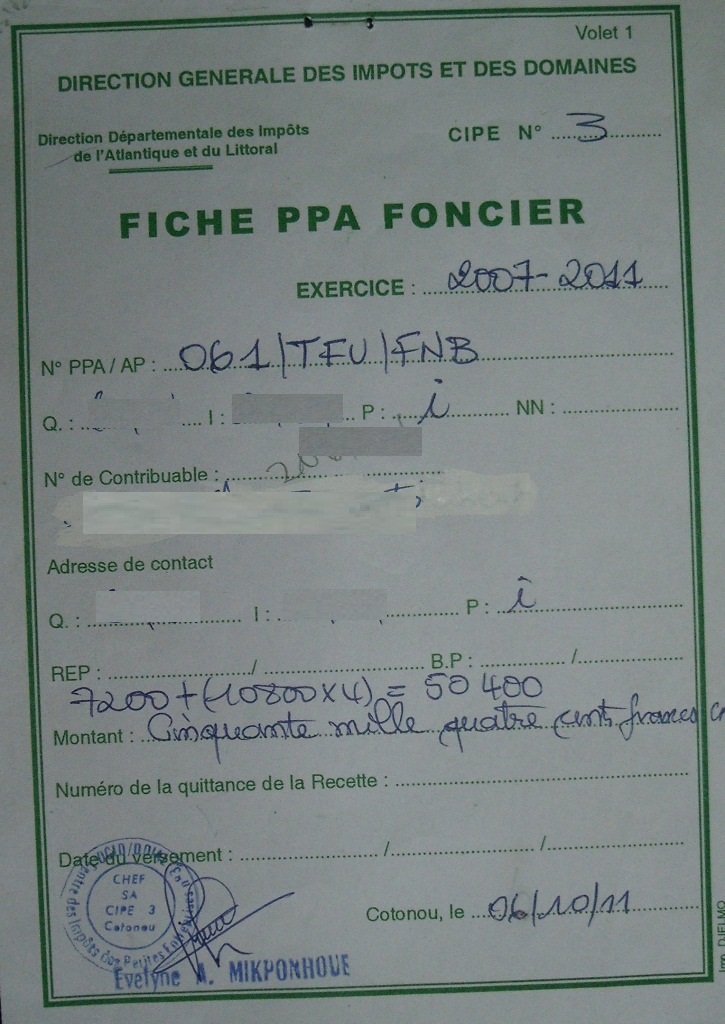 Volet 1
DIRECTION GENERALE DES IMPOTS ET DES DOMAINES
Direction Départementale des Impôts
de l'Atlantique et du Littoral
CIPE N° 3
FICHE PPA FONCIER
EXERCICE : 2007-2011
N° PPA / AP : 061/TFU/FNB
Q. : I : P : i NN :
N° de Contribuable :
Adresse de contact
Q. : I : P : i
REP : / B.P : /
7200 + (10800 x 4) = 50 400
Montant : Cinquante mille quatre cents francs
Numéro de la quittance de la Recette :
Date du versement : / /
CHEF
SA
CIPE 3
Cotonou
Centre des Impôts des Petites
Cotonou, le 06/10/11
Evelyne A. MIKPONHOUE
Imp. DJELMO